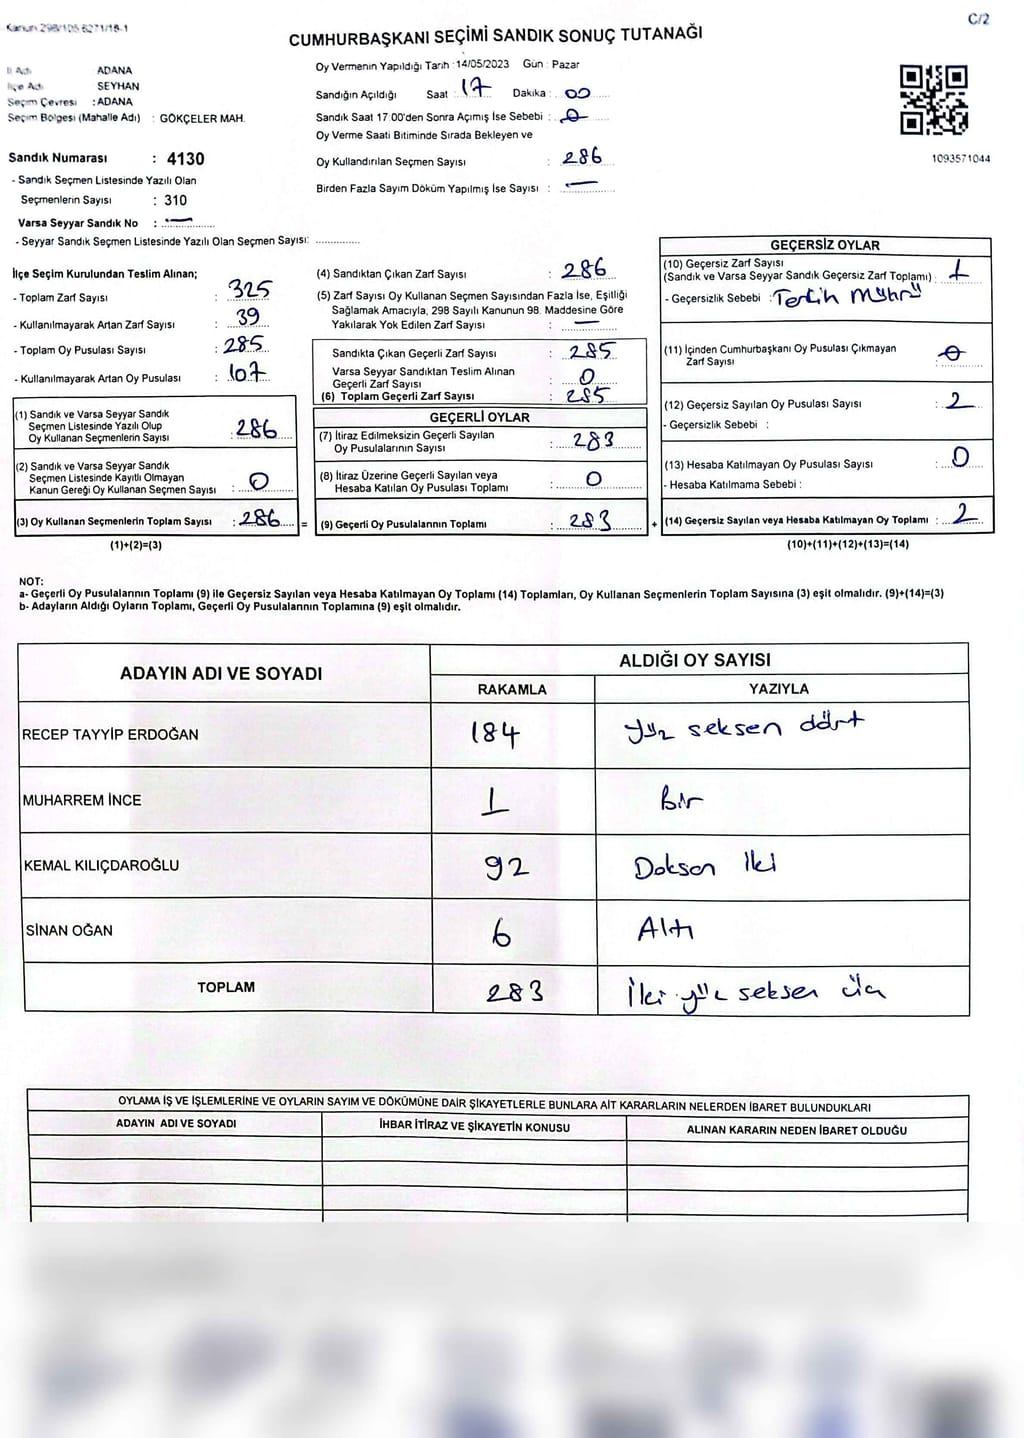 Kanun 298/105,6271/18-1
C/2
CUMHURBAŞKANI SEÇİMİ SANDIK SONUÇ TUTANAĞI
İl Adı ADANA
İlçe Adı SEYHAN
Seçim Çevresi : ADANA
Seçim Bölgesi (Mahalle Adı) : GÖKÇELER MAH.
Sandık Numarası : 4130
- Sandık Seçmen Listesinde Yazılı Olan
Seçmenlerin Sayısı : 310
Varsa Seyyar Sandık No : —
- Seyyar Sandık Seçmen Listesinde Yazılı Olan Seçmen Sayısı: ..............
Oy Vermenin Yapıldığı Tarih : 14/05/2023 Gün : Pazar
Sandığın Açıldığı Saat : 17 Dakika : 00
Sandık Saat 17:00'den Sonra Açımış İse Sebebi : 0
Oy Verme Saati Bitiminde Sırada Bekleyen ve
Oy Kullandırılan Seçmen Sayısı : 286
Birden Fazla Sayım Döküm Yapılmış İse Sayısı : —
1093571044
İlçe Seçim Kurulundan Teslim Alınan;
- Toplam Zarf Sayısı : 325
- Kullanılmayarak Artan Zarf Sayısı : 39
- Toplam Oy Pusulası Sayısı : 285
- Kullanılmayarak Artan Oy Pusulası : 107
(1) Sandık ve Varsa Seyyar Sandık
Seçmen Listesinde Yazılı Olup
Oy Kullanan Seçmenlerin Sayısı : 286
(2) Sandık ve Varsa Seyyar Sandık
Seçmen Listesinde Kayıtlı Olmayan
Kanun Gereği Oy Kullanan Seçmen Sayısı : 0
(3) Oy Kullanan Seçmenlerin Toplam Sayısı : 286 =
(1)+(2)=(3)
(4) Sandıktan Çıkan Zarf Sayısı : 286
(5) Zarf Sayısı Oy Kullanan Seçmen Sayısından Fazla İse, Eşitliği
Sağlamak Amacıyla, 298 Sayılı Kanunun 98. Maddesine Göre
Yakılarak Yok Edilen Zarf Sayısı : —
Sandıkta Çıkan Geçerli Zarf Sayısı : 285
Varsa Seyyar Sandıktan Teslim Alınan
Geçerli Zarf Sayısı : 0
(6) Toplam Geçerli Zarf Sayısı : 285
GEÇERLİ OYLAR
(7) İtiraz Edilmeksizin Geçerli Sayılan
Oy Pusulalarının Sayısı : 283
(8) İtiraz Üzerine Geçerli Sayılan veya
Hesaba Katılan Oy Pusulası Toplamı : 0
(9) Geçerli Oy Pusulalarının Toplamı : 283 +
GEÇERSİZ OYLAR
(10) Geçersiz Zarf Sayısı
(Sandık ve Varsa Seyyar Sandık Geçersiz Zarf Toplamı) : 1
- Geçersizlik Sebebi : Tercih Mührü
(11) İçinden Cumhurbaşkanı Oy Pusulası Çıkmayan
Zarf Sayısı : 0
(12) Geçersiz Sayılan Oy Pusulası Sayısı : 2
- Geçersizlik Sebebi :
(13) Hesaba Katılmayan Oy Pusulası Sayısı : 0
- Hesaba Katılmama Sebebi :
(14) Geçersiz Sayılan veya Hesaba Katılmayan Oy Toplamı : 2
(10)+(11)+(12)+(13)=(14)
NOT:
a- Geçerli Oy Pusulalarının Toplamı (9) ile Geçersiz Sayılan veya Hesaba Katılmayan Oy Toplamı (14) Toplamları, Oy Kullanan Seçmenlerin Toplam Sayısına (3) eşit olmalıdır. (9)+(14)=(3)
b- Adayların Aldığı Oyların Toplamı, Geçerli Oy Pusulalarının Toplamına (9) eşit olmalıdır.
ADAYIN ADI VE SOYADI
ALDIĞI OY SAYISI
RAKAMLA YAZIYLA
RECEP TAYYİP ERDOĞAN 184 Yüz seksen dört
MUHARREM İNCE 1 Bir
KEMAL KILIÇDAROĞLU 92 Doksan iki
SİNAN OĞAN 6 Altı
TOPLAM 283 İki yüz seksen üç
OYLAMA İŞ VE İŞLEMLERİNE VE OYLARIN SAYIM VE DÖKÜMÜNE DAİR ŞİKAYETLERLE BUNLARA AİT KARARLARIN NELERDEN İBARET BULUNDUKLARI
ADAYIN ADI VE SOYADI İHBAR İTİRAZ VE ŞİKAYETİN KONUSU ALINAN KARARIN NEDEN İBARET OLDUĞU